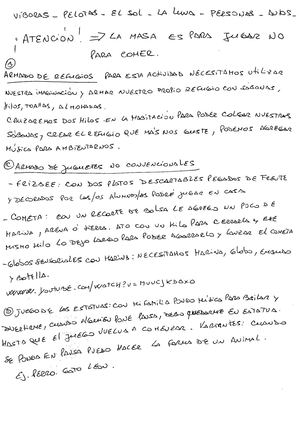 VIBORAS - PELOTAS - EL SOL - LA LUNA - PERSONAS - AVIOS -
¡ATENCIÓN! => LA MASA ES PARA JUGAR NO
PARA COMER.
ARMADO DE REFUGIOS PARA ESTA ACTIVIDAD NECESITAMOS UTILIZAR
NUESTRA IMAGINACIÓN Y ARMAR NUESTRO PROPIO REFUGIO CON SABANAS,
HILOS, TOALLAS, ALMOHADAS.
CRUZAREMOS DOS HILOS EN LA HABITACIÓN PARA PODER COLGAR NUESTRAS
SÁBANAS, CREAR EL REFUGIO QUE MÁS NOS GUSTE, PODEMOS AGREGAR
MÚSICA PARA AMBIENTARNOS.
© ARMADO DE JUGUETES NO CONVENCIONALES
- FRIZBEE: CON DOS PLATOS DESCARTABLES PEGADOS DE FRENTE
Y DECORADOS POR LAS/OS ALUMNAS/OS PODRÉ JUGAR EN CASA
- COMETA: CON UN RECORTE DE BOLSA LE AGREGO UN POCO DE
HARINA, ARENA O TIERRA. ATO CON UN HILO PARA CERRARLA Y ESE
MISMO HILO LO DEJO LARGO PARA PODER AGARRARLO Y LANZAR EL COMETA
- GLOBOS SENSORIALES CON HARINA: NECESITAMOS HARINA, GLOBO, EMBUDO
Y BOTELLA.
D JUEGO DE LAS ESTATUAS: CON MI FAMILIA PONGO MÚSICA PARA BAILAR Y
DIVERTIRME, CUANDO ALGUIEN PONE PAUSA, DEBO QUEDARME EN ESTATUA
HASTA QUE EL JUEGO VUELVA A COMENZAR. VARIANTES: CUANDO
SE PONGA EN PAUSA PUEDO HACER LA FORMA DE UN ANIMAL.
EJ. PERRO GATO LEON.